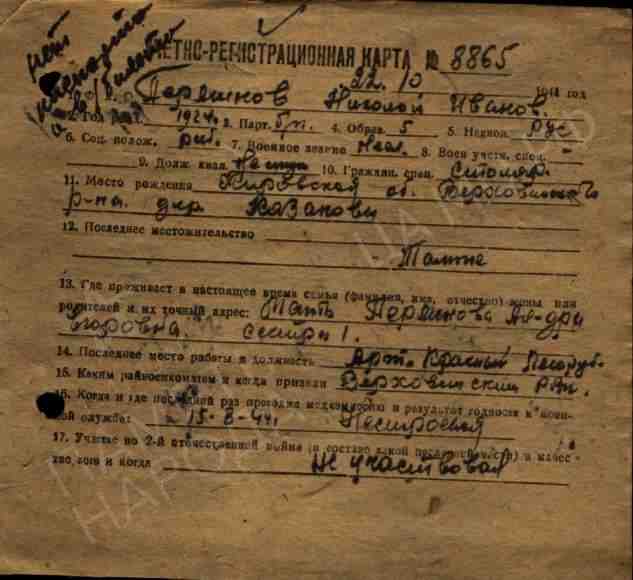 нет
УЧЕТНО-РЕГИСТРАЦИОННАЯ КАРТА № 8865
22. 10 1944 год
Першинов Николай Иванов.
2. Год рожд. 1924. 3. Парт. б/п. 4. Образ. 5 5. Национ. рус
6. Соц. полож. раб. 7. Военное звание 8. Воен. учетн. спец. –
9. Долж. квал. 10. Граждан. спец. Столяр.
11. Место рождения Кировская об. Верховинского
р-на. дер. Казаковы
12. Последнее местожительство
Тамже
13. Где проживает в настоящее время семья (фамилия, имя, отчество) жены или
родителей и их точный адрес: Мать Першинова Ал-дра
Егоровна сестры 1.
14. Последнее место работы и должность Арт. Красный Лесоруб.
15. Каким райвоенкоматом и когда призван Верховинским РВК.
16. Когда и где последний раз проходил медкомиссию и результат годности к воен-
ной службе: 15-3-44г. Нестроевой
17. Участие во 2-й отечественной войне (в составе какой
во, кого и когда Не участвовал